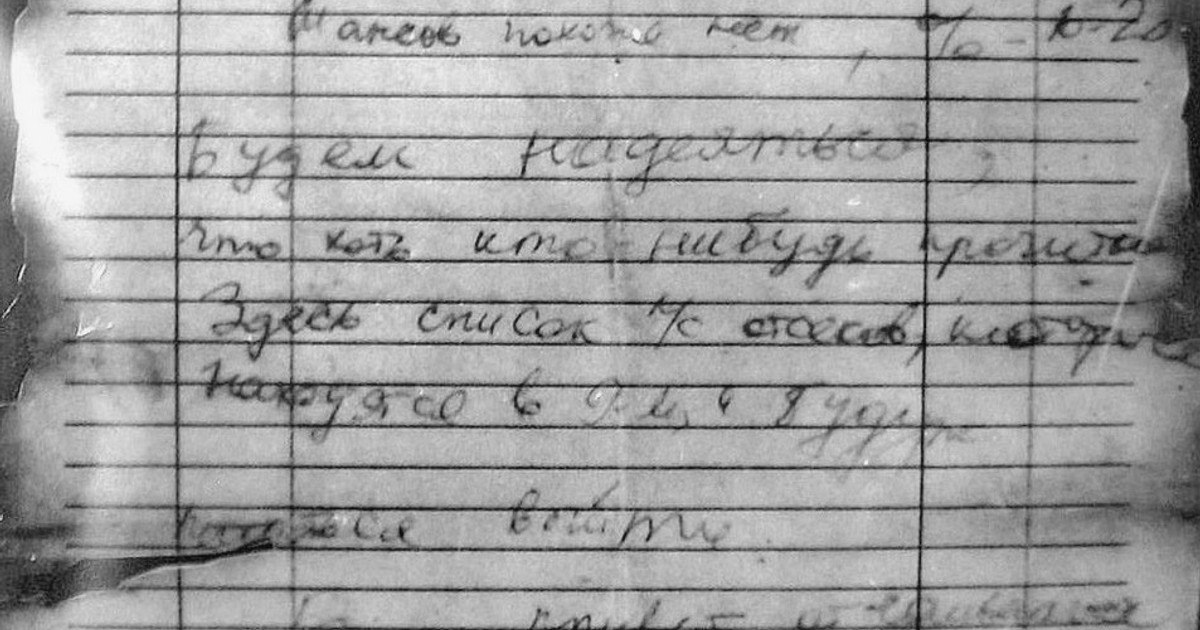 Шансов похоже нет, % 10-20
Будем надеяться,
что хоть кто-нибудь прочитает
Здесь список л/с отсеков, которые
находятся в 9-м, и будут
пытаться выйти.
привет